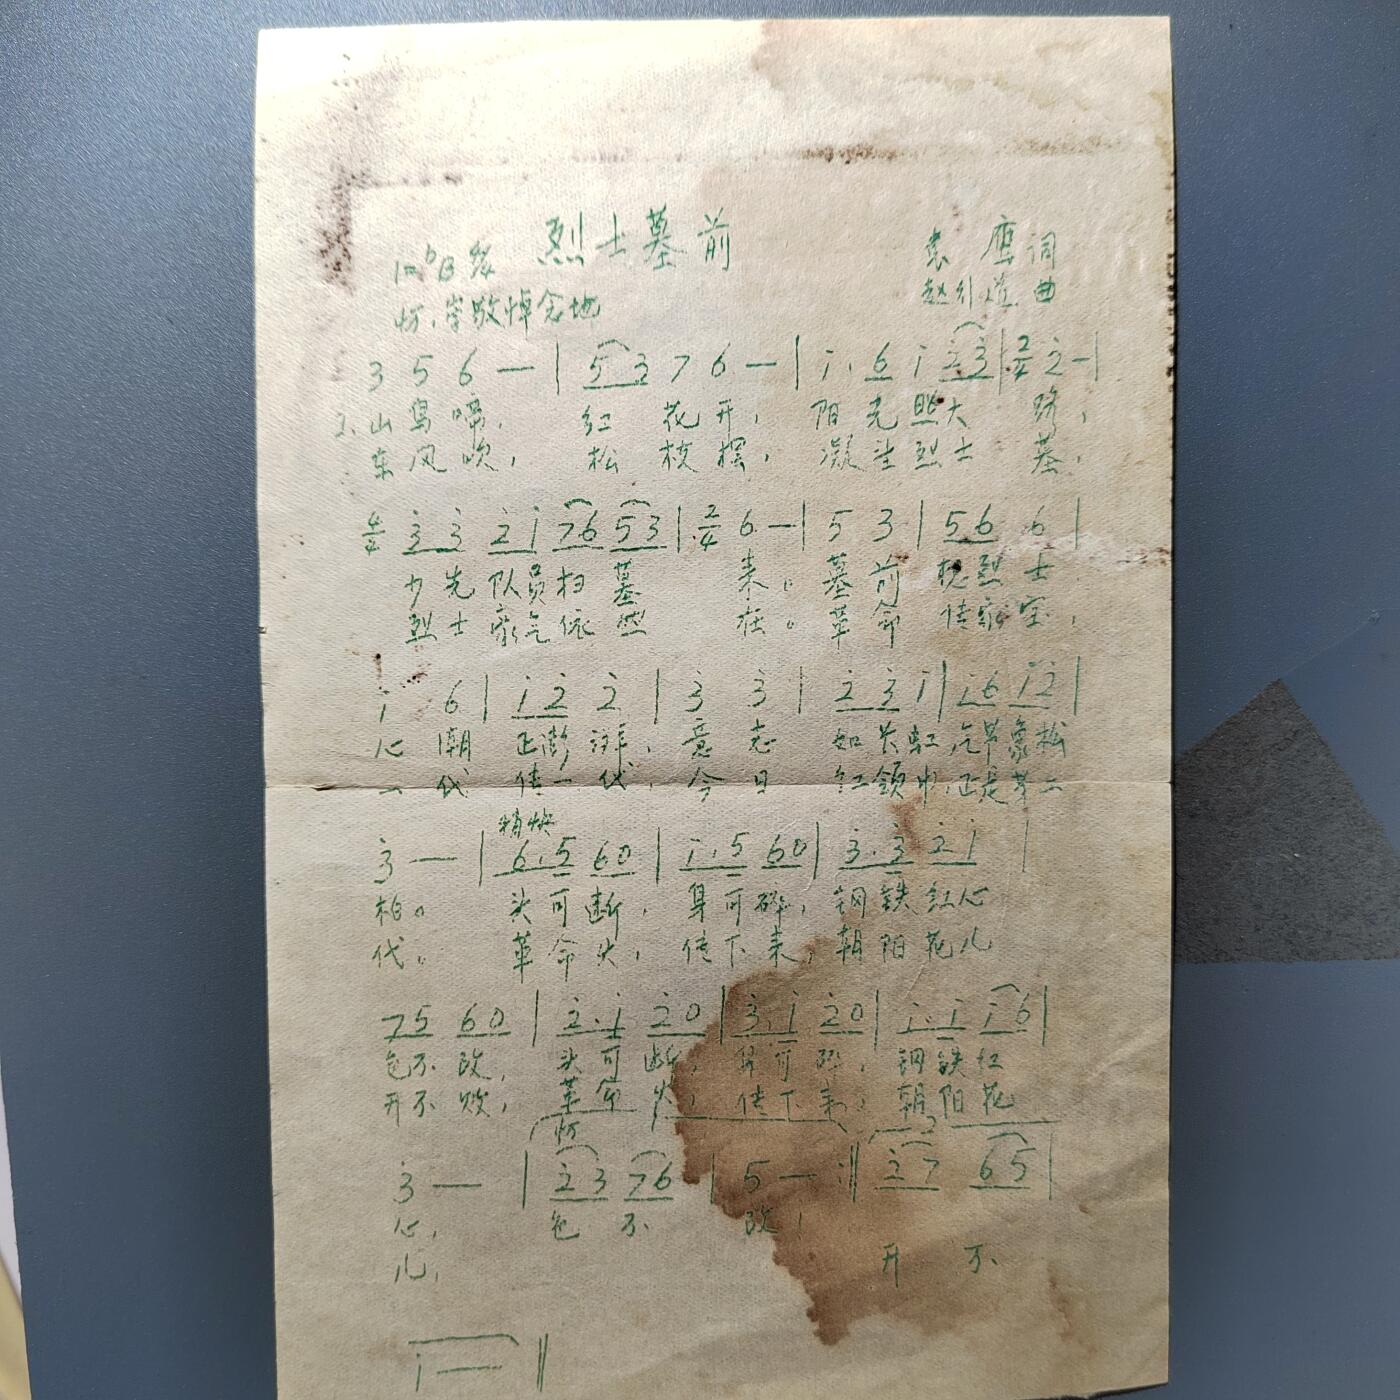 烈士墓前
1=♭B 4/4
袁鹰词
慢.崇敬悼念地
曲
3 5 6 — | 5 3 7 6 — | i. 6 i 2̇ 3̇ | 2/4 2̇ — |
1.山鸟啼, 红花开, 阳光照大路,
东风吹, 松枝摆, 凝望烈士墓,
4/4 3̇ 3̇ 2̇ i 7 6 5 3 | 2/4 6 — | 5 3 | 5 6 6 |
少先队员扫墓来。墓前 烈士
烈士豪气依然在。革命传家宝,
i 6 | i 2̇ 2̇ | 3̇ 3̇ | 2̇ 3̇ i | i 6 i 2̇ |
心潮正澎湃, 意志如长虹,气节象松
一代传一代, 今日红领巾,正是第二
稍快
3̇ — | 6. 5 6 0 | i. 5 6 0 | 3̇. 3̇ 2̇ 1 |
柏。 头可断, 身可碎, 钢铁红心
代。 革命火, 传下来, 朝阳花儿
7 5 6 0 | 2̇. i 2̇ 0 | 3̇. i 2̇ 0 | i. i i 6 |
色不改, 头可断, 身可碎, 钢铁红
开不败, 革命火, 传下来, 朝阳花
慢
3̇ — | 2̇ 3 7 6 | 5 — :‖ 2̇ 7 6 5 |
心, 色 不 改,
儿, 开 不
i — ‖